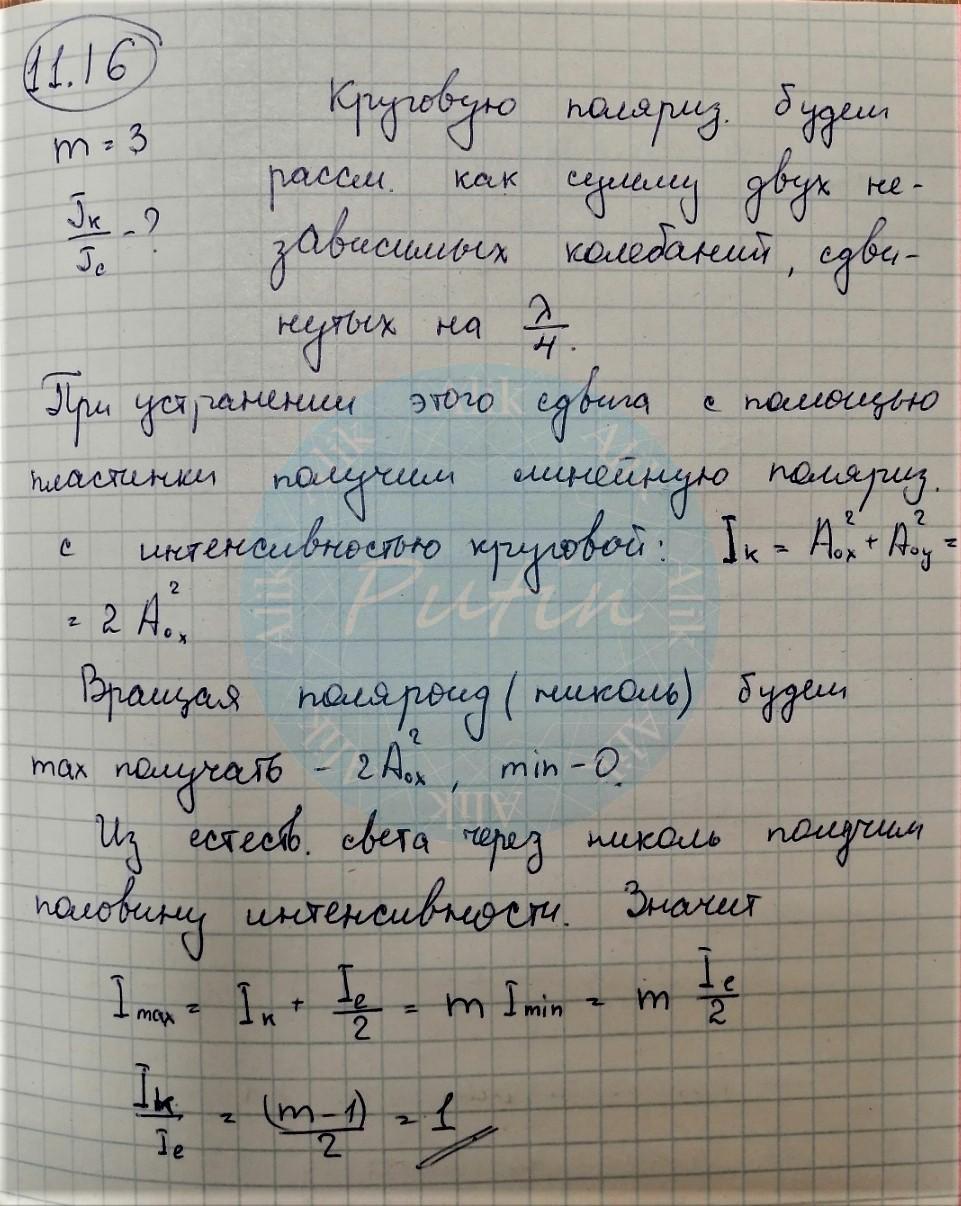 11.16
Круговую поляриз. будем
m = 3
рассм. как сумму двух не-
Iк/Iе - ?
зависимых колебаний, сдви-
нутых на λ/4.
При устранении этого сдвига с помощью
пластинки получим линейную поляриз.
с интенсивностью круговой: Iк = A₀ₓ² + A₀y² =
= 2 A₀ₓ²
Вращая поляроид (николь) будем
max получать - 2A₀ₓ², min - 0.
Из естеств. света через николь получим
половину интенсивности. Значит
Imax = Iк + Ie/2 = m Imin = m Ie/2
Iк/Ie = (m-1)/2 = 1
Putin
Alik
Alik
Alik
Alik
Alik
Alik
Alik
Alik